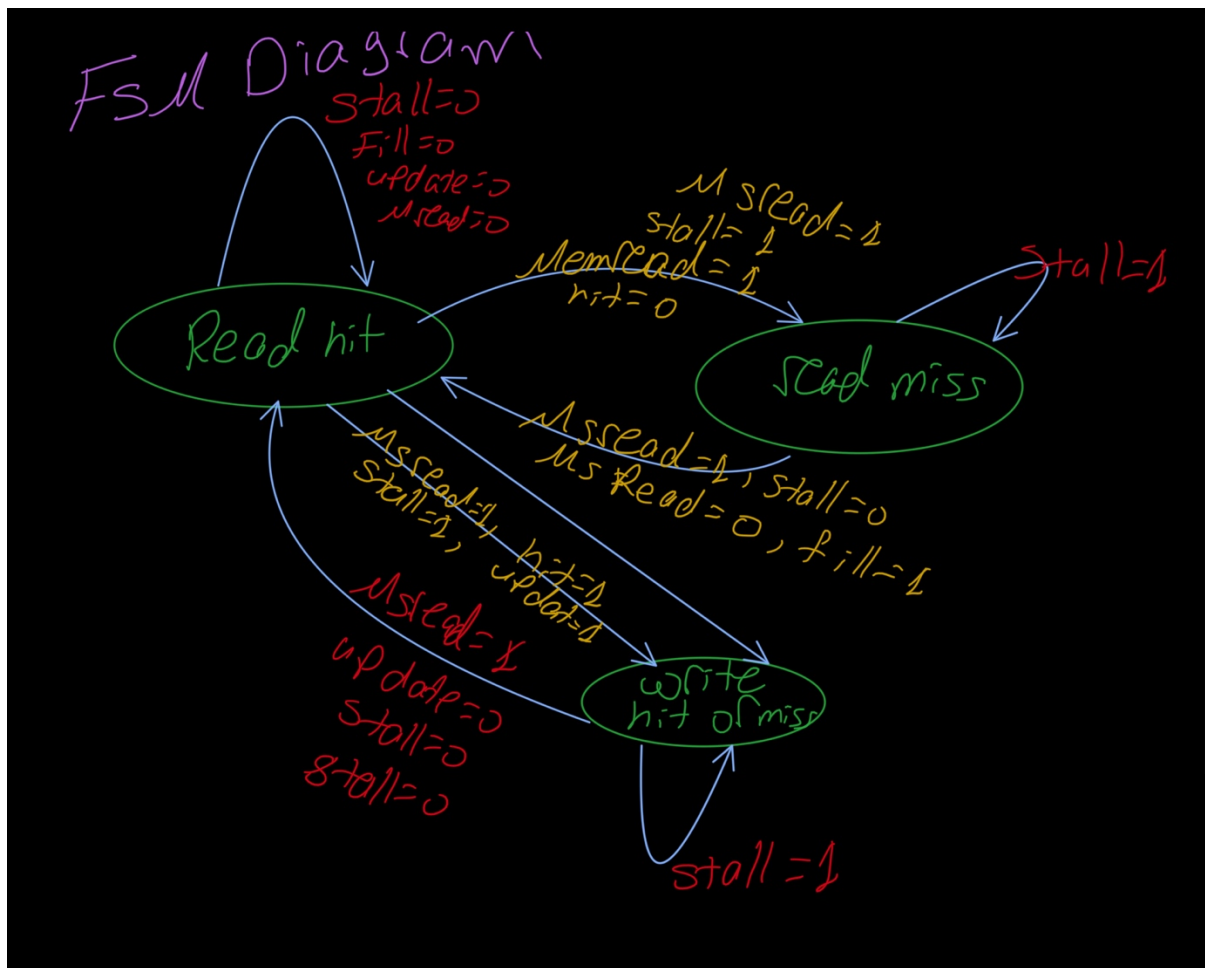 FSM Diagram
Stall=0
Fill=0
update=0
Msread=0
Msread=1
stall=1
Memread=1
hit=0
Stall=1
Read hit
read miss
Msread=1, stall=0
Ms Read=0, fill=1
Msread=1, hit=1
Stall=1, updat=1
Msread=1
update=0
Stall=0
Stall=0
write
hit or miss
stall=1